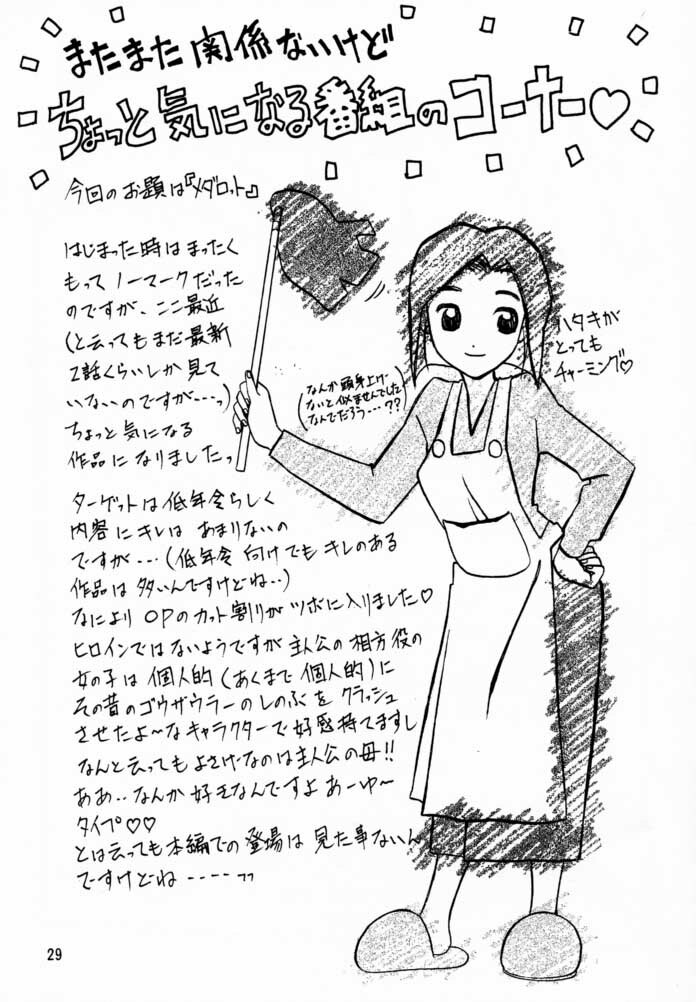 またまた関係ないけど
ちょっと気になる番組のコーナー♡
今回のお題は『メダロット』
はじまった時はまったく
もってノーマークだった
のですが、ここ最近
(と云ってもまだ最新
2話くらいしか見て
いないのですが---っ)
ちょっと気になる
作品になりましたっ
ターゲットは低年令らしく
内容にキレはあまりないの
ですが…(低年令向けでもキレのある
作品は多いんですけどね‥)
なによりOPのカット割りがツボに入りました♡
ヒロインではないようですが主人公の相方役の
女の子は個人的(あくまで個人的)に
その昔のゴウザウラーのしのぶをクラッシュ
させたよ〜なキャラクターで好感持てますし
なんと云ってもよさげなのは主人公の母!!
ああ‥なんか好きなんですよあーゆ〜
タイプ♡♡
とは云っても本編での登場は見た事ないん
ですけどね----
(なんか頭身上げ
ないと似ませんでした
なんでだろう…??)
ハタキが
とっても
チャーミング♡
29